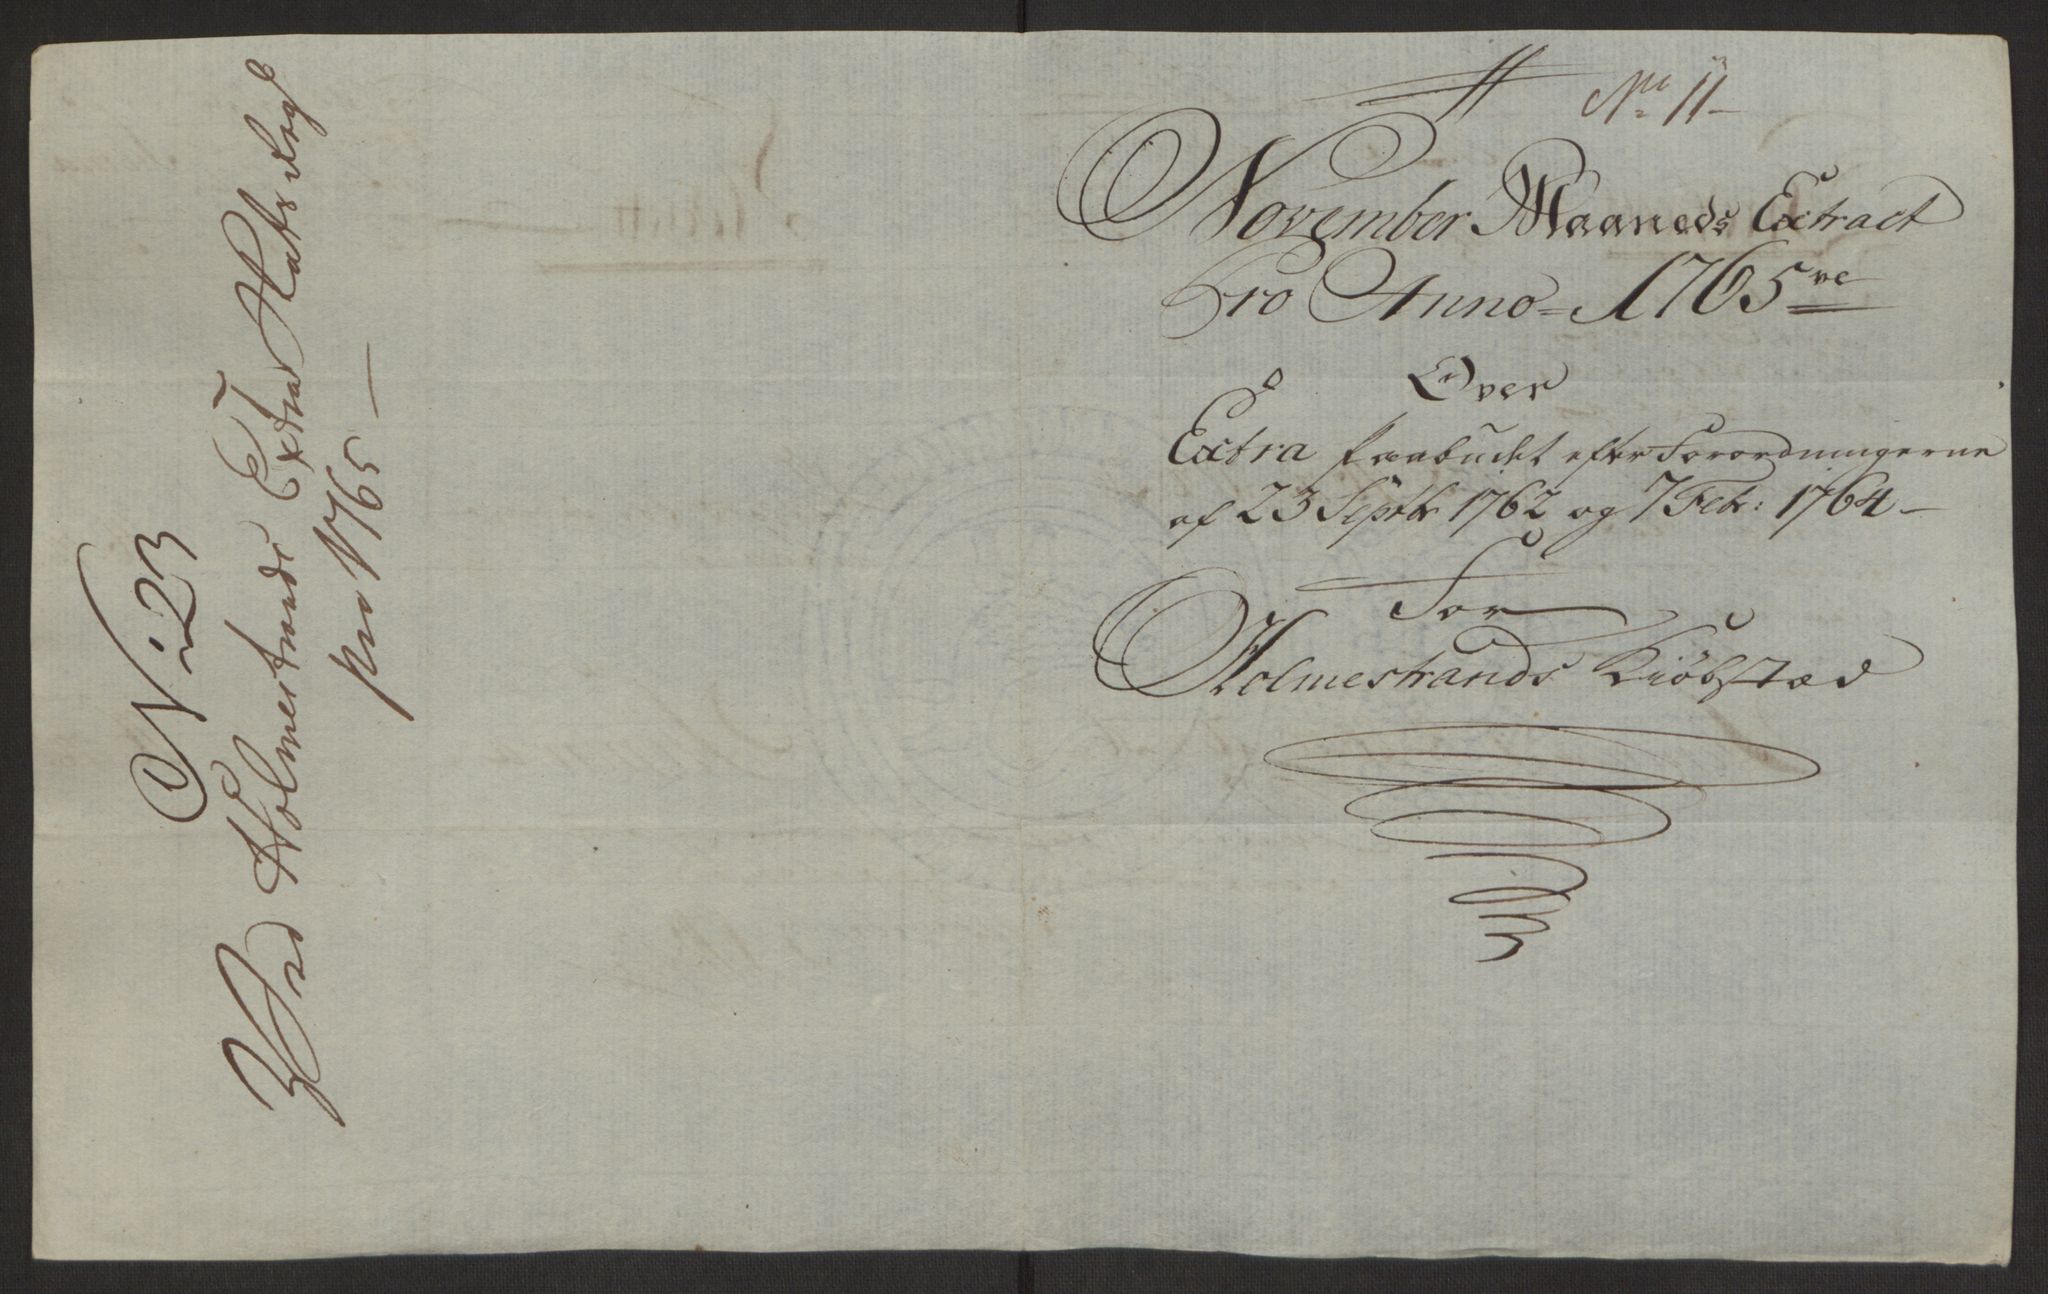 N: 23
Ved Holmestrands Extra Skats Regsk
pro 1765 —
No 11 —
November Maaneds Extract
Pro Anno = 1765ve
Over
Extra Paabudet efter Forordningerne
af 23 Septbr 1762 og 7 Febr: 1764 —
For
Holmestrands Kiöbstæd